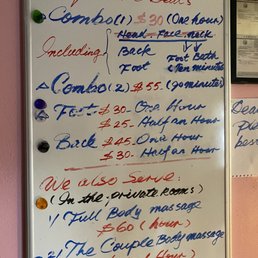 Combo(1) $30 (One hour)
Including
Head - Face - neck
Back
Foot
Foot Bath
Ten minutes
Combo(2) $55. (90 minutes)
Foot - $30 - One Hour
$25 - Half an Hour
Back - $45 - One Hour
$30 - Half an Hour
We also Serve:
(In the private Rooms)
1/ Full Body massage
$60 (hour)
2/ The Couple Body massage
Hour)
Dear